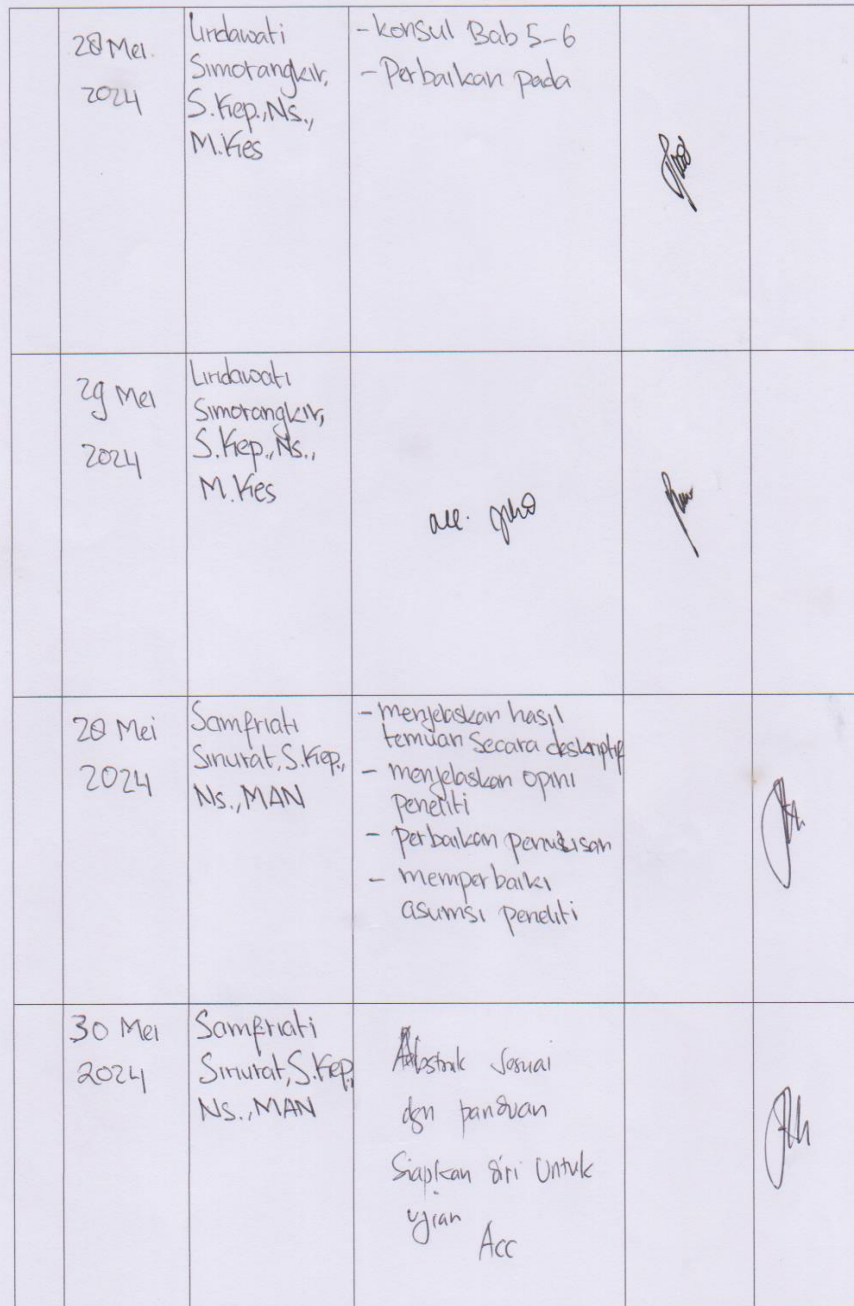 28 Mei
2024
Lindawati
Simorangkir,
S.Kep.,Ns.,
M.Kes
- Konsul Bab 5-6
- Perbaikan pada
29 Mei
2024
Lindawati
Simorangkir,
S.Kep.,Ns.,
M.Kes
acc.
28 Mei
2024
Samfriati
Sinurat, S.Kep.,
Ns., MAN
- menjelaskan hasil
temuan secara deskriptif
- menjelaskan opini
peneliti
- perbaikan penulisan
- memperbaiki
asumsi peneliti
30 Mei
2024
Samfriati
Sinurat, S.Kep.,
Ns., MAN
Abstrak sesuai
dgn panduan
Siapkan diri untuk
ujian
Acc